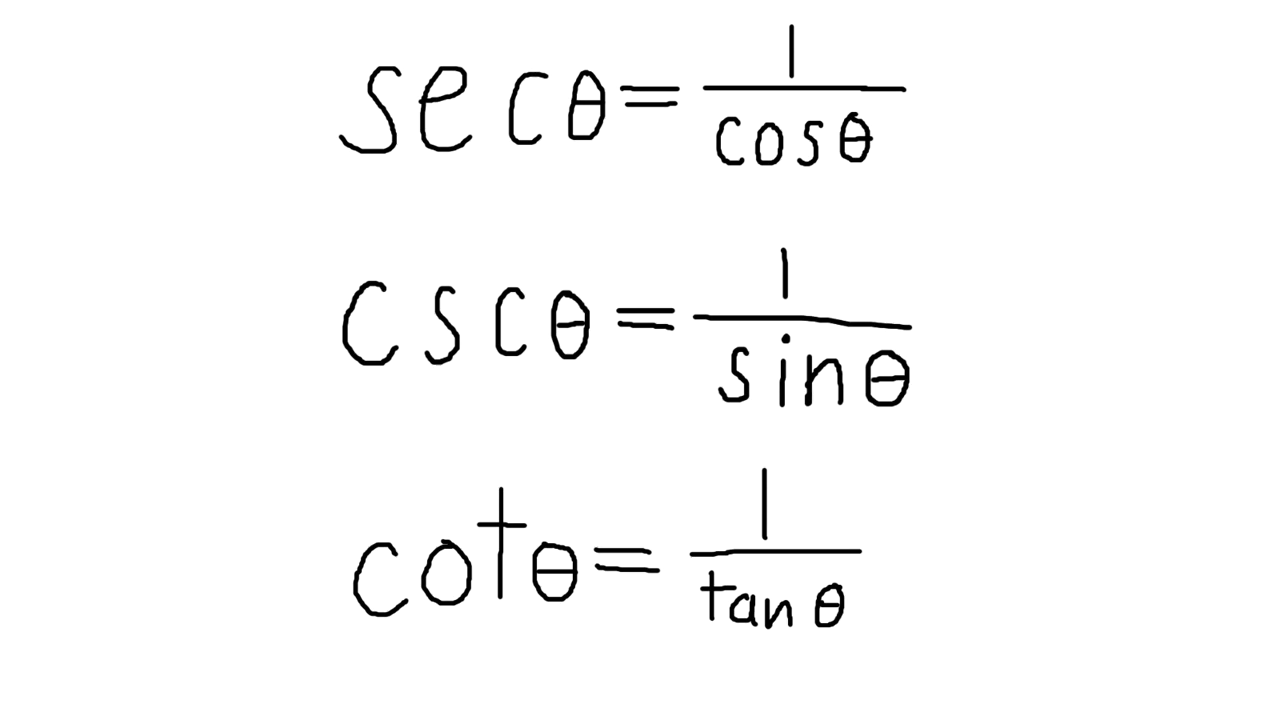 secθ = 1/cosθ
cscθ = 1/sinθ
cotθ = 1/tanθ